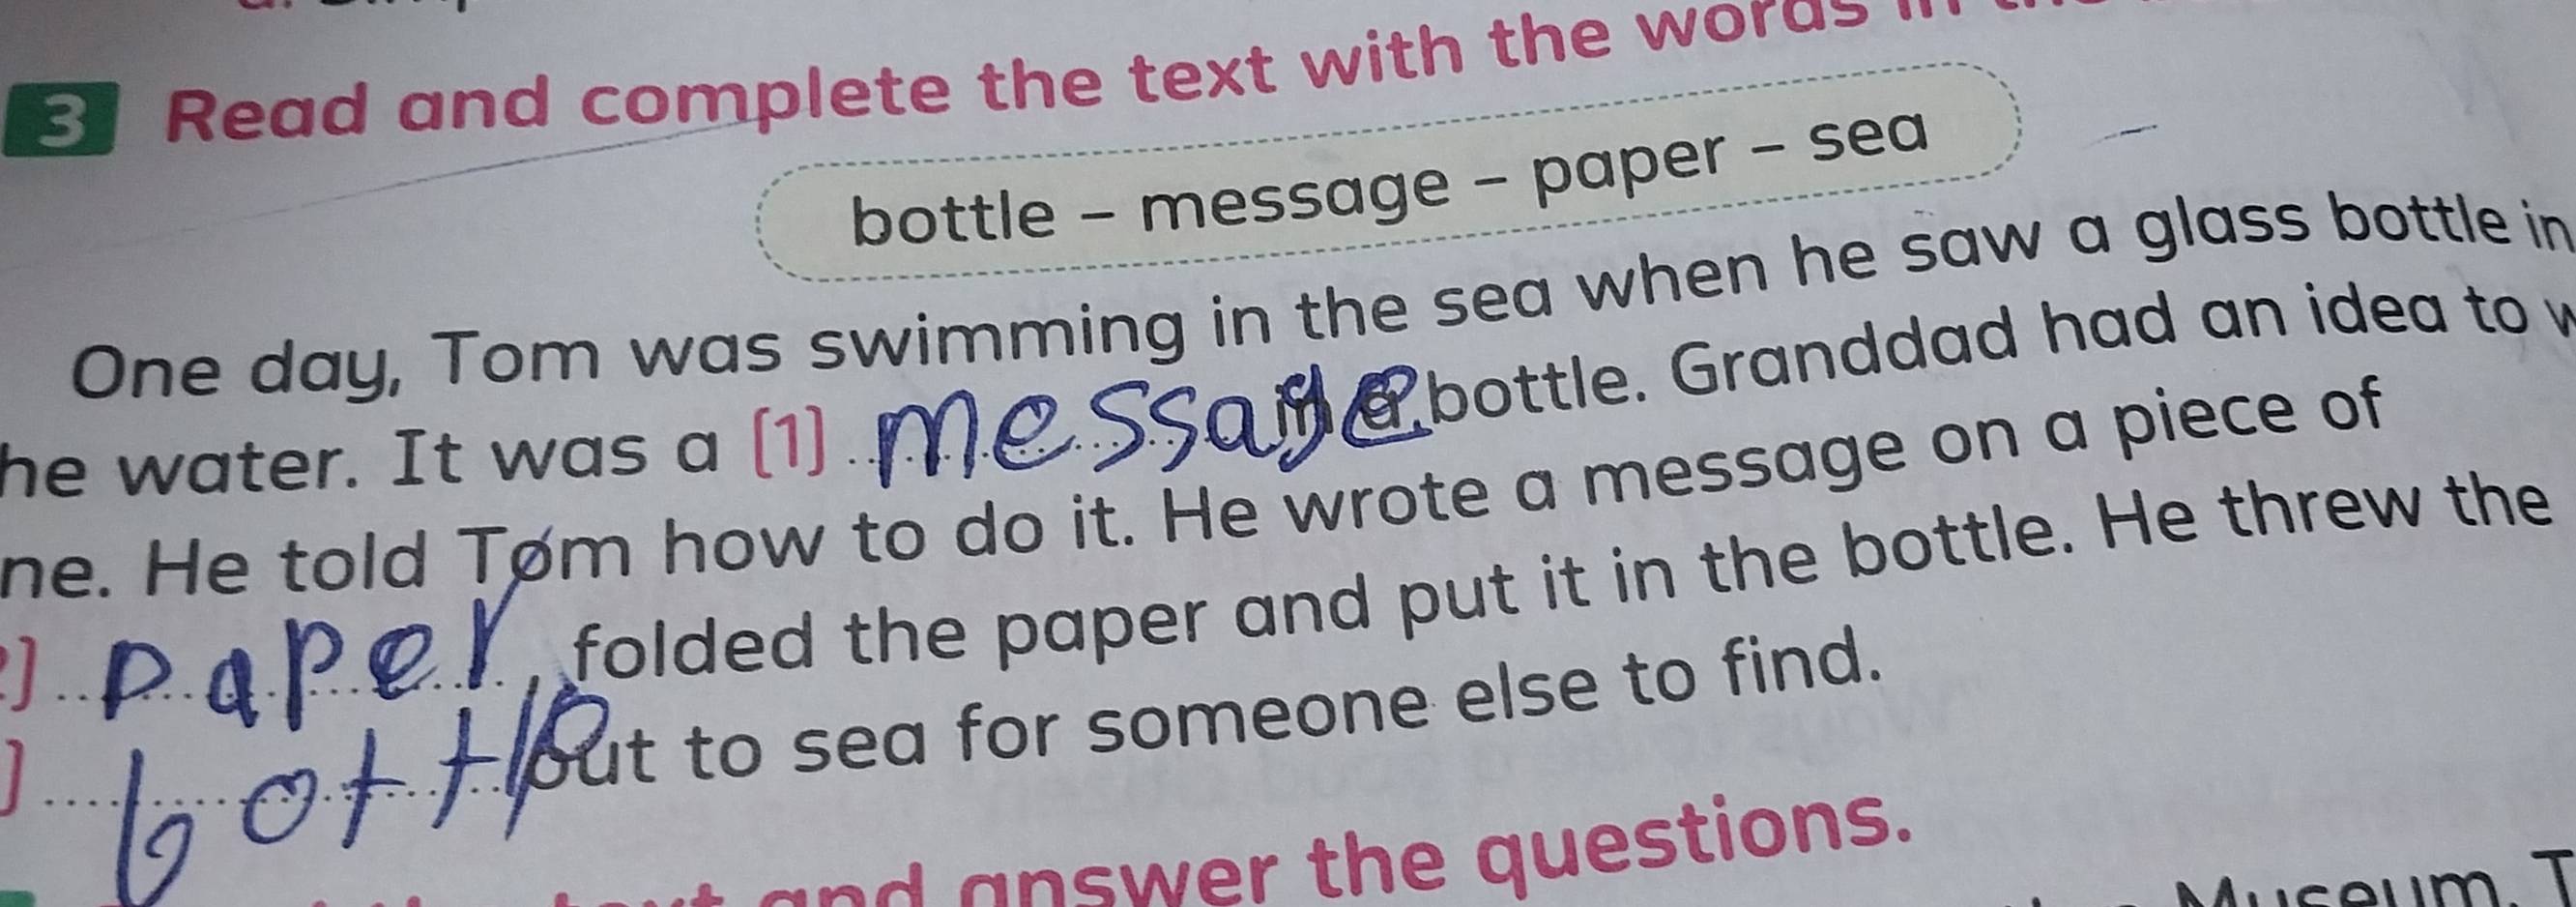 3 Read and complete the text with the words in the
bottle – message – paper – sea
One day, Tom was swimming in the sea when he saw a glass bottle in
he water. It was a (1) message in a bottle. Granddad had an idea to w
ne. He told Tom how to do it. He wrote a message on a piece of
) paper, folded the paper and put it in the bottle. He threw the
) bottle out to sea for someone else to find.
and answer the questions.
Museum. T